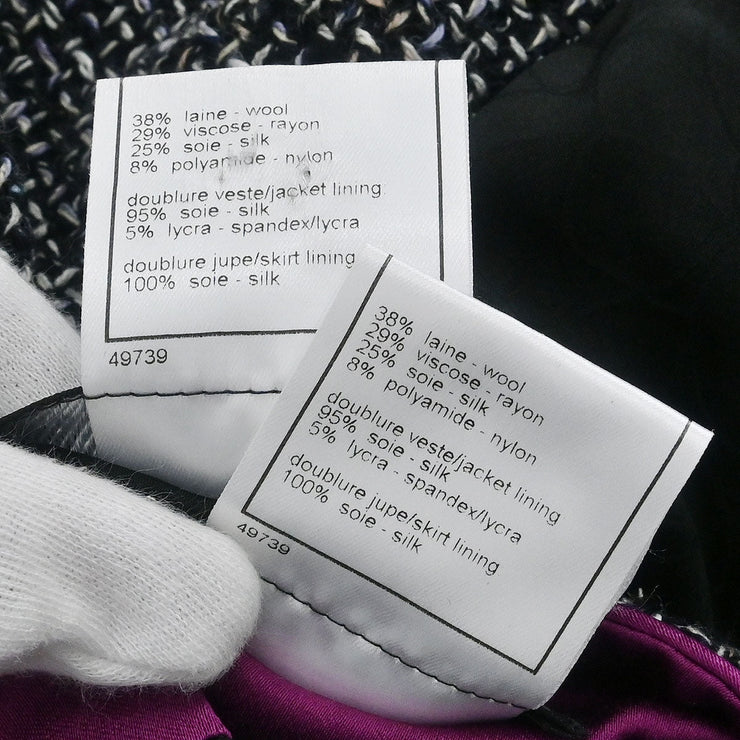 38% laine - wool
29% viscose - rayon
25% soie - silk
8% polyamide - nylon
doublure veste/jacket lining
95% soie - silk
5% lycra - spandex/lycra
doublure jupe/skirt lining
100% soie - silk
49739
38% laine - wool
29% viscose - rayon
25% soie - silk
8% polyamide - nylon
doublure veste/jacket lining
95% soie - silk
5% lycra - spandex/lycra
doublure jupe/skirt lining
100% soie - silk
49739